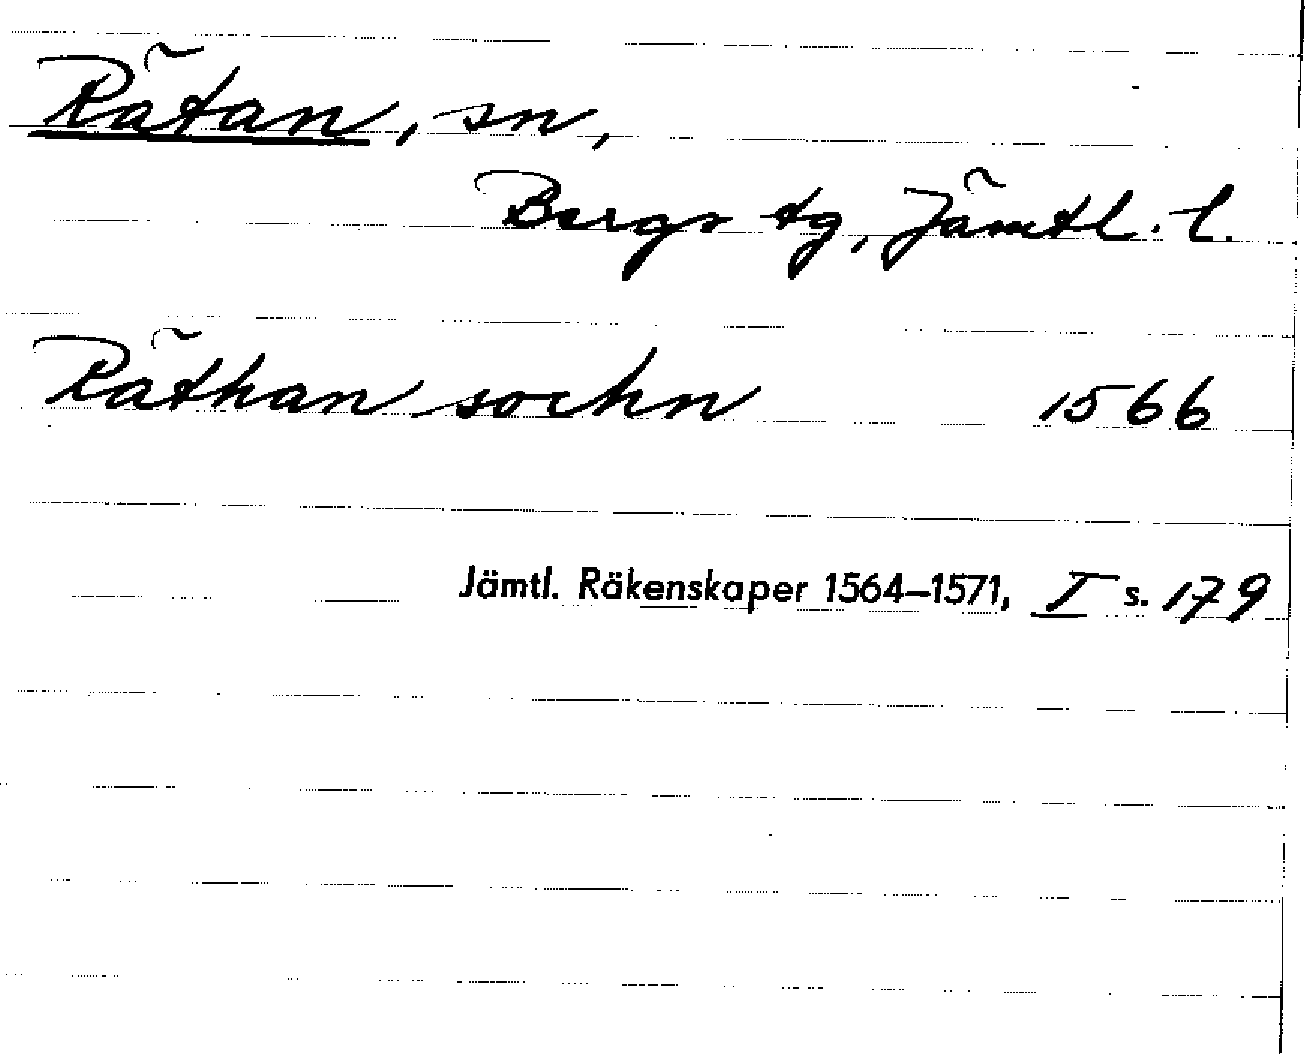 Rätan, sn,
Bergs tg, Jämtl. l.
Räthan sochn 1566
Jämtl. Räkenskaper 1564–1571, I s. 179